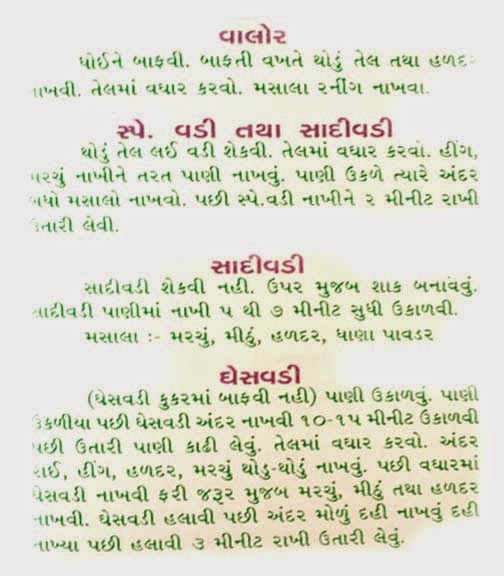 વાલોર
ધોઈને બાફવી. બાફતી વખતે થોડું તેલ તથા હળદર
નાખવી. તેલમાં વઘાર કરવો. મસાલા રનીંગ નાખવા.
સ્પે. વડી તથા સાદીવડી
થોડું તેલ લઈ વડી શેકવી. તેલમાં વઘાર કરવો. હીંગ,
મરચું નાખીને તરત પાણી નાખવું. પાણી ઉકળે ત્યારે અંદર
બધો મસાલો નાખવો. પછી સ્પે.વડી નાખીને ૨ મીનીટ રાખી
ઉતારી લેવી.
સાદીવડી
સાદીવડી શેકવી નહી. ઉપર મુજબ શાક બનાવવું.
સાદીવડી પાણીમાં નાખી ૫ થી ૭ મીનીટ સુધી ઉકાળવી.
મસાલા :- મરચું, મીઠું, હળદર, ધાણા પાવડર
ઘેસવડી
(ઘેસવડી કુકરમાં બાફવી નહી) પાણી ઉકાળવું. પાણી
ઉકળીયા પછી ઘેસવડી અંદર નાખવી ૧૦-૧૫ મીનીટ ઉકાળવી
પછી ઉતારી પાણી કાઢી લેવું. તેલમાં વઘાર કરવો. અંદર
રાઈ, હીંગ, હળદર, મરચું થોડુ-થોડું નાખવું. પછી વઘારમાં
ઘેસવડી નાખવી ફરી જરૂર મુજબ મરચું, મીઠું તથા હળદર
નાખવી. ઘેસવડી હલાવી પછી અંદર મોળું દહી નાખવું દહી
નાખ્યા પછી હલાવી ૩ મીનીટ રાખી ઉતારી લેવું.